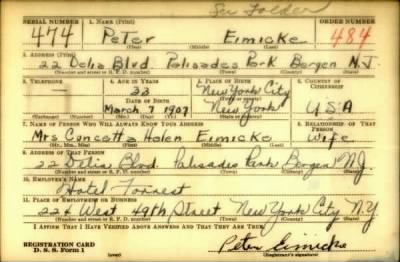 See Folder
SERIAL NUMBER 1. NAME (Print) ORDER NUMBER
474 Peter Eimicke 484
(First) (Middle) (Last)
2. ADDRESS (Print)
22 Delia Blvd Palisades Park Bergen N.J.
(Number and street or R. F. D. number) (Town) (County) (State)
3. TELEPHONE 4. AGE IN YEARS 5. PLACE OF BIRTH 6. COUNTRY OF CITIZENSHIP
33 New York City
DATE OF BIRTH
March 7 1907 New York USA
7. NAME OF PERSON WHO WILL ALWAYS KNOW YOUR ADDRESS 8. RELATIONSHIP OF THAT PERSON
Mrs Concetta Helen Eimicke Wife
(Mr., Mrs., Miss) (First) (Middle) (Last)
9. ADDRESS OF THAT PERSON
22 Delia Blvd. Palisades Park Bergen N.J.
(Number and street or R. F. D. number) (Town) (County) (State)
10. EMPLOYER'S NAME
Hotel Forrest
11. PLACE OF EMPLOYMENT OR BUSINESS
224 West 49th Street New York City NY
(Number and street or R. F. D. number) (Town) (County) (State)
I AFFIRM THAT I HAVE VERIFIED ABOVE ANSWERS AND THAT THEY ARE TRUE.
REGISTRATION CARD
D. S. S. Form 1 (over) Peter Eimicke
(Registrant's signature)